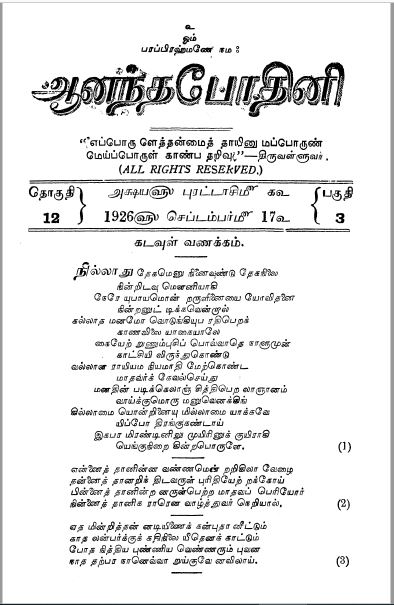 உ
ஓம்
பரப்பிரஹ்மணே நம :
ஆனந்தபோதினி
“எப்பொரு ளெத்தன்மைத் தாயினு மப்பொருண்
மெய்ப்பொருள் காண்ப தறிவு.”—திருவள்ளுவர்.
(ALL RIGHTS RESERVED.)
தொகுதி 12
அக்ஷயளு புரட்டாசிமீ கஉ
1926ளு செப்டம்பர்மீ 17உ
பகுதி 3
கடவுள் வணக்கம்.
நில்லாது தேகமெனு நினைவுண்டு தேகநிலை
நின்றிடவு மௌனியாகி
நேரே யுபாயமொன் றருளினை யோவிதனை
நின்றனுட் டிக்கவென்றால்
கல்லாத மனமோ வொடுங்கியுப ரதிபெறக்
காணவிலை யாகையாலே
கையேற் றுணும்புசிப் பொவ்வாதெ நாளுமுன்
காட்சியி லிருந்துகொண்டு
வல்லாள ராயியம நியமாதி மேற்கொண்ட
மாதவர்க் கேவல்செய்து
மனதின் படிக்கெலாஞ் சித்திபெற லாஞானம்
வாய்க்குமொரு மனுவெனக்கிங்
கில்லாமை யொன்றினையு மில்லாமை யாக்கவே
யிப்போ திரங்குகண்டாய்
இகபர மிரண்டினிலு முயிரினுக் குயிராகி
யெங்குநிறை கின்றபொருளே. (1)
என்னைத் தானின்ன வண்ணமென் றறிகிலா வேழை
தன்னைத் தானறிக் திடவருள் புரிதியேற் றக்கோய்
பின்னைத் தானின்ற னருள்பெற்ற மாதவப் பெரியோர்
நின்னைத் தானிக ராரென வாழ்த்துவர் நெறியால். (2)
ஏத மின்றித்தன் னடியிணைக் கன்புதா னீட்டும்
காத லன்பர்க்குக் கதிநிலை யீதெனக் காட்டும்
போத நித்திய புண்ணிய வெண்ணரும் புவன
நாத தற்பர நானெவ்வா றுய்குவே னவிலாய். (3)